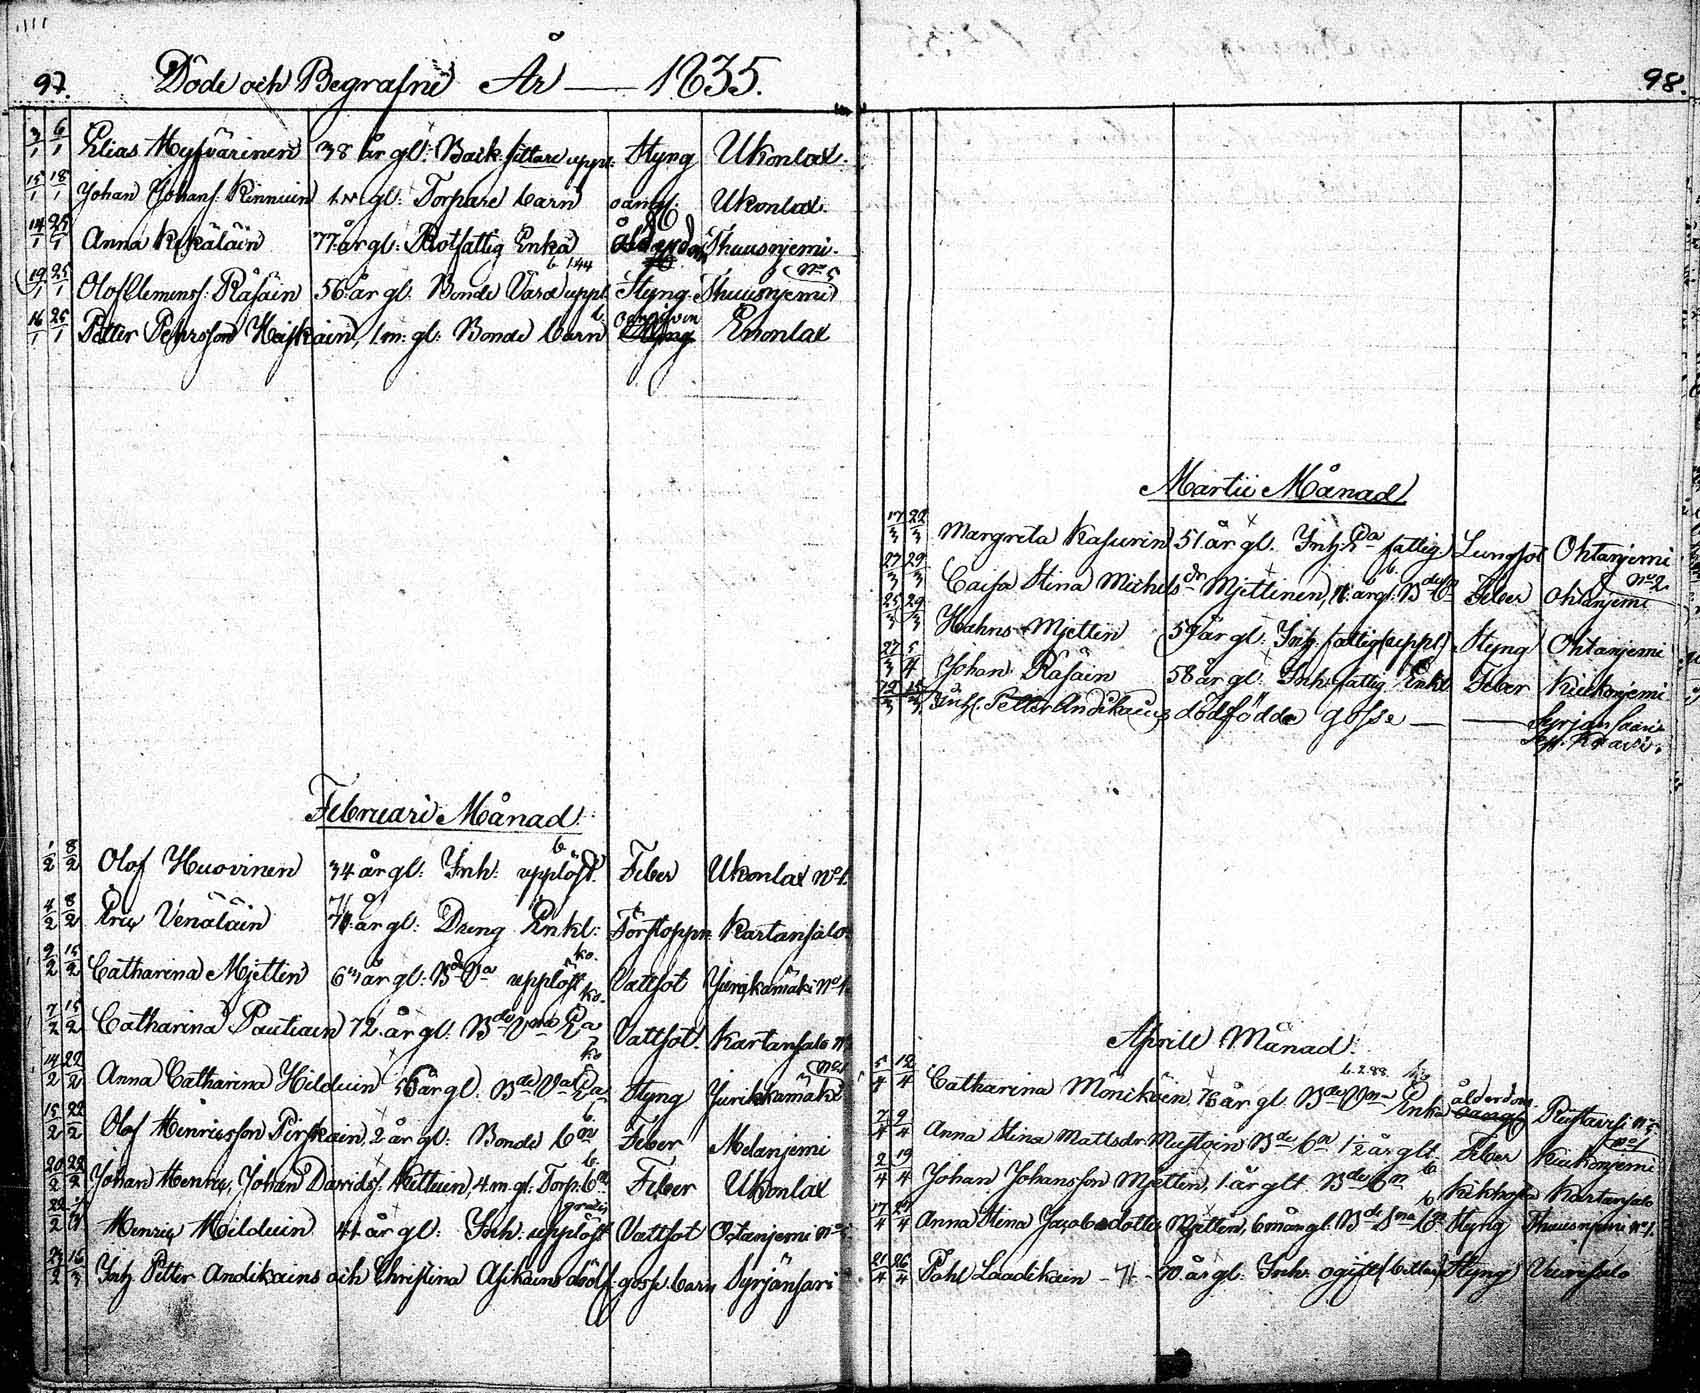 97. Döde och Begrafne År — 1835.
3/1 6/1 Elias Hyfvärinen 38 år gl: Back sittare uppl: Styng Ukonlax.
15/1 18/1 Johan Johansf. Kinnuin gl: Torpare barn oangf. Ukonlax.
14/1 25/1 Anna Kekäläin 77 år gl: Rotfattig Enka ålderdom Thuusnjemi.
b. 144 No 5
19/1 25/1 Olof Clemensf. Räsäin 56 år gl. Bonde uppl. Styng. Thuusnjemi
16/1 25/1 Petter Pehrsson Heiskain, 1 m: gl: Bonde barn oangifven Enonlax
Februari Månad.
1/2 8/2 Olof Huovinen 34 år gl: Inh: upplöst. Feber Ukonlax No 1.
4/2 8/2 Eric Venäläin 71 år gl: Dreng Enkl: Förstoppn: Kartansalo
9/2 15/2 Catharina Mjettin år gl: Bde Va upplöst Vattsot Jurikkamäki No 1.
7/2 15/2 Catharina Pautiain 72. år gl. Bde Vna Ea Vattsot. Kartansalo
14/2 22/2 Anna Catharina Hilduin 56 år gl: Bde Va Ea Styng Jurikkamäki
15/2 22/2 Olof Henricsson Pirskain, 2 år gl: Bonde bn Feber Melanjemi
20/2 22/2 Johan Henric, Johan Davidsf. Kettuin, 4. m. gl: Torp. bn Feber Ukonlax
22/2 Henric Hilduin 41 år gl: Inh: upplöst Vattsot Ohtanjemi
23/2 15/3 Inh. Petter Andikains och Christina Asikains dödf: gosse barn Syrjänsari
98.
Martii Månad
17/3 22/3 Margreta Kasurin 51 år gl. Inh: Ea fattig Lungsot Ohtanjemi
No 2
27/3 29/3 Caisa Stina Michelsdr Mjettinen, år gl: Bde bn Feber Ohtanjemi
25/3 29/3 Hahns Mjettin 59 år gl: Inh. fattig (uppl.) Styng Ohtanjemi
27/3 5/4 Johan Räsäin 58 år gl: Inh. fattig Enkl Feber Kiukonjemi
12/3 15/3 Inh. Petter Andikains dödfödda gosse — — Syrjänsaari
Aprill Månad.
b. 288.
5/4 12/4 Catharina Mönikäin, 76 år gl. Bde Vna Enka ålderdom
7/4 9/4 Anna Stina Mattsdr Mustoin Bde bn 1½ år glt Feber Kiukonjemi
2/4 19/4 Johan Johansson Mjettin, 1 år glt Bde bn Kikhosta Kartansalo
17/4 Anna Stina Jacobsdotter Mjettin, 6 mån gl. Bde Sna bn Styng Thuusnjemi No 1.
21/4 26/4 Påhl Laadikain – 71 – 70 år gl: Inh. ogift (bettlare) Styng Vuorisalo